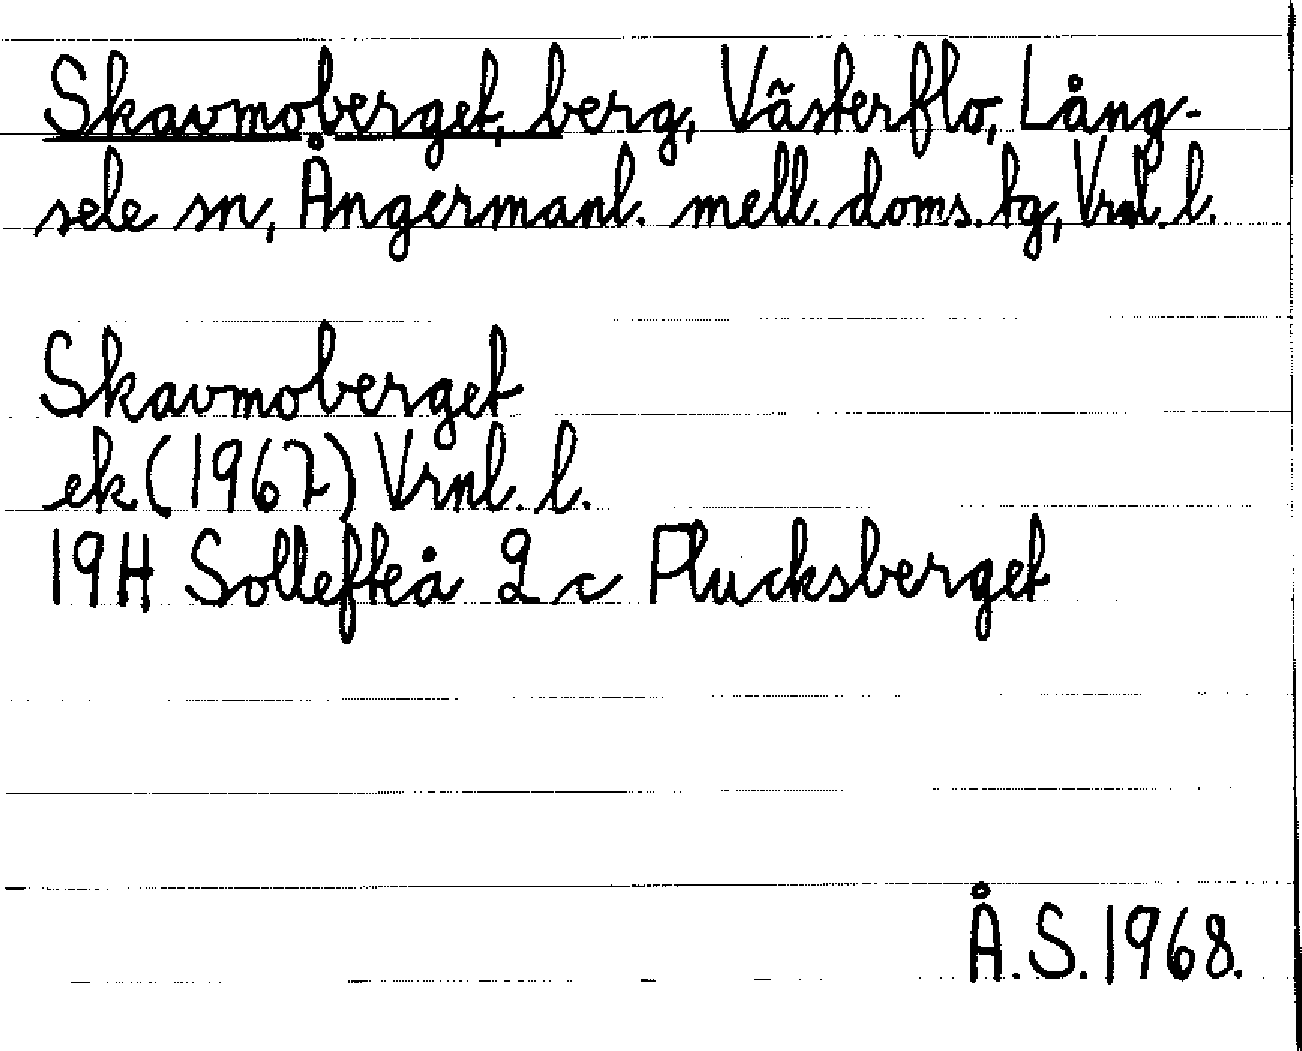 Skavmoberget, berg, Västerflo, Lång-
sele sn, Ångermanl. mell. doms. tg, Vrnl. l.
Skavmoberget
ek (1967) Vrnl. l.
19H Sollefteå 2 c Plucksberget
Å.S. 1968.